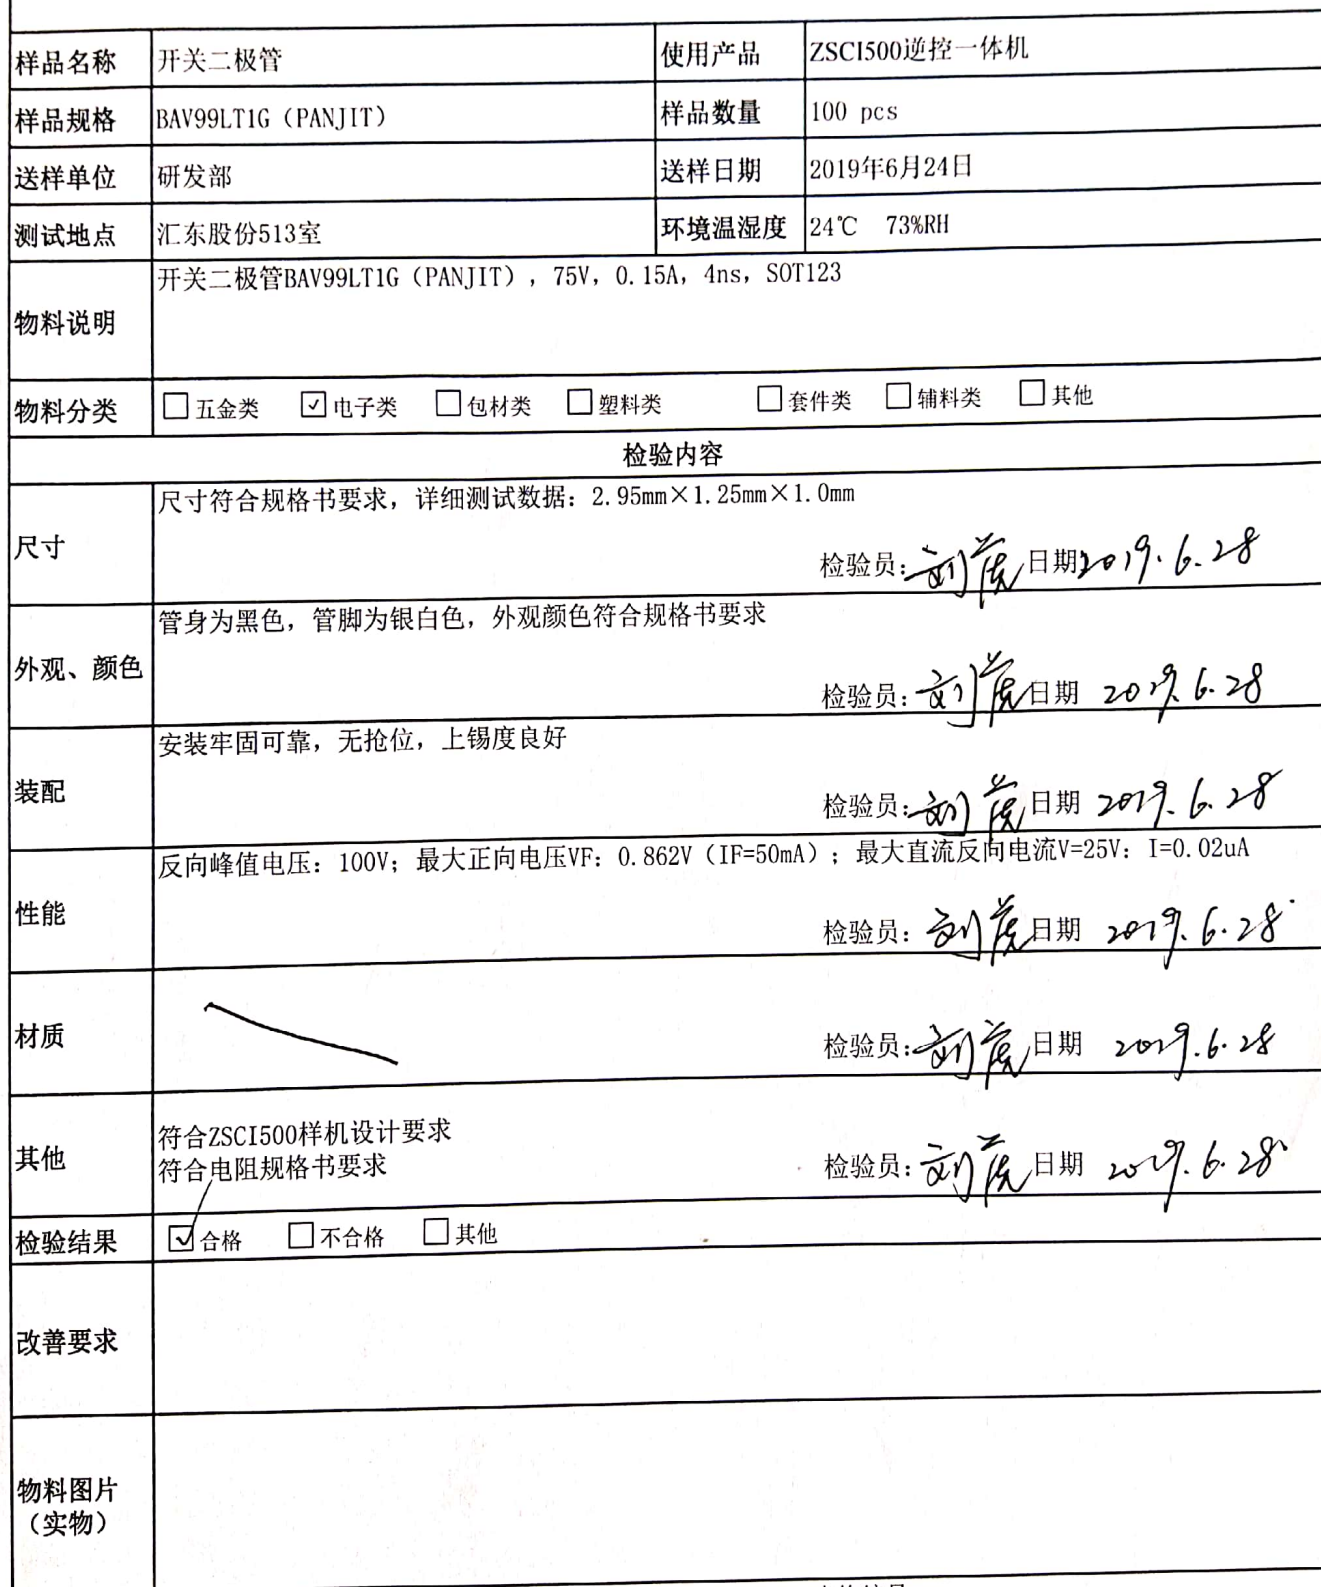 样品名称 开关二极管 使用产品 ZSCI500逆控一体机
样品规格 BAV99LT1G（PANJIT） 样品数量 100 pcs
送样单位 研发部 送样日期 2019年6月24日
测试地点 汇东股份513室 环境温湿度 24℃ 73%RH
物料说明 开关二极管BAV99LT1G（PANJIT）, 75V, 0.15A, 4ns, SOT123
物料分类 □五金类 ☑电子类 □包材类 □塑料类 □套件类 □辅料类 □其他
检验内容
尺寸 尺寸符合规格书要求，详细测试数据：2.95mm×1.25mm×1.0mm
检验员: 刘 日期 2019.6.28
外观、颜色 管身为黑色，管脚为银白色，外观颜色符合规格书要求
检验员: 刘 日期 2019.6.28
装配 安装牢固可靠，无抢位，上锡度良好
检验员: 刘 日期 2019.6.28
性能 反向峰值电压：100V；最大正向电压VF：0.862V（IF=50mA）；最大直流反向电流V=25V：I=0.02uA
检验员: 刘 日期 2019.6.28
材质
检验员: 刘 日期 2019.6.28
其他 符合ZSCI500样机设计要求
符合电阻规格书要求
检验员: 刘 日期 2019.6.28
检验结果 ☑合格 □不合格 □其他
改善要求
物料图片
（实物）